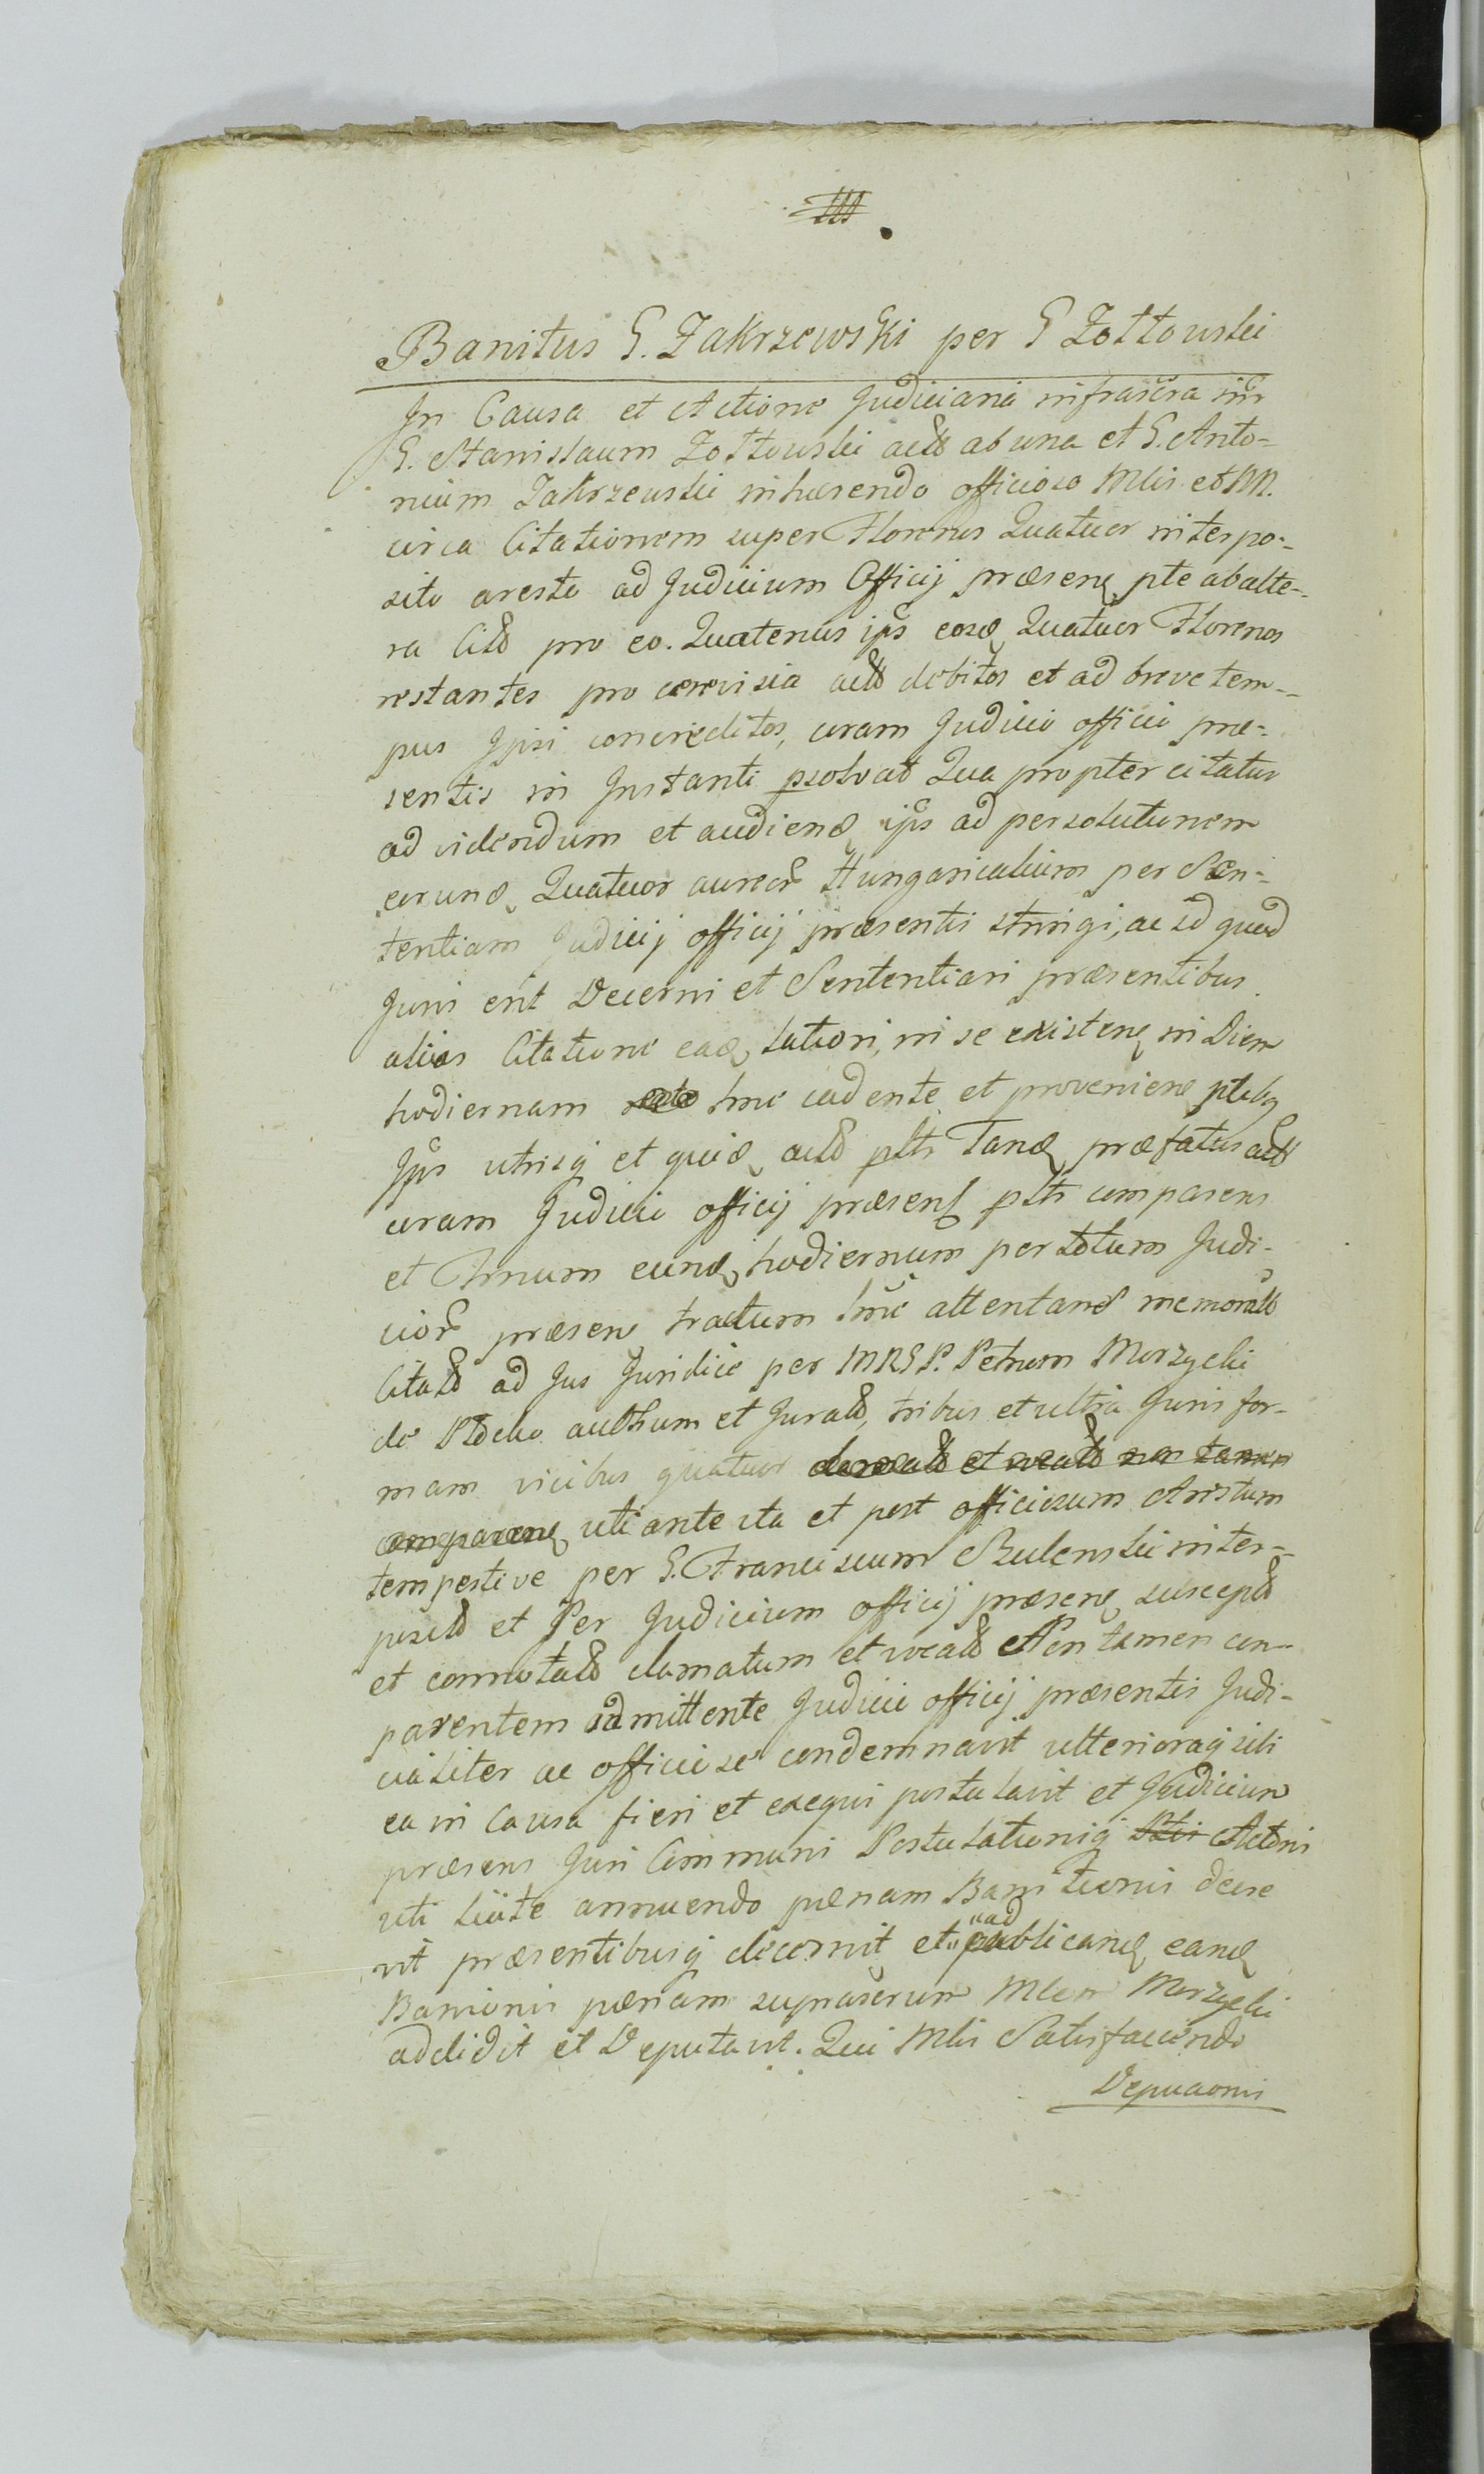 Banitus G. Zakrzewski per G Zołtowski
In Causa et Actione Judiciaria infrascra inr
G. Stanislaum Zołtowski actō ab una et G. Anto-
nium Zakrzewski inhærendo officioso Mlis et NN.
circa Citationem super Florenos Quatuor interpo-
sito aresto ad Judicium Officij præsenę pte ab alte-
ra Citō pro eo. Quatenus ips eosd Quatuor Florenos
restantes pro cerevisia actō debitos et ad breve tem-
pus Ipsi concreditos, coram Judicio officii præ-
sentis in Instanti psolvat Qua propter citatur
ad videndum et audiend ips ad persolutionem
eorund Quatuor aureor Hungaricalium per Sen-
tentiam Judicij officij præsentis stringi, ac id quod
Juris erit Decerni et Sententiari præsentibus
alias Citatione ead latiori, in se existenę in Diem
hodiernam hnc cadente et proveniene ptebę
Ips utrisqj et quid actō pltr Tand præfatus actō
coram Judicio officij præsenę pltr comparens
et Trnum eund hodiernum per totum Judi-
cior præsene tractum hnc attentand memoratō
Citatō ad Jus Juridice per MRSP. Petrum Morzycki
de Płocko authum et Juratō, tribus et ultra Juris for-
mam vicibus quatuor clamatō et vocatō non tamen
comparenę uti ante ita et post officiosum Arestum
tempestive per G. Franciscum Sulenski inter-
positō et Per Judicium officij præsenę susceptō
et connotatō clamatum et vocatō Non tamen con-
parentem admittente Judicio officij præsentis Judi-
cialiter ac officiose condemnavit ulterioraqj sibi
ea in Causa fieri et exequi postulavit et Judicium
præsens Juri Communi Postulationiqj Actōris
uti licite annuendo pœnam Banitionis decre
vit præsentibusqj decernit et ad publicand eand
Banionis pœnam suprascrum Mlem Morzycki
addidit et Deputavit. Qui Mlis Satisfaciendo
Depuaonis